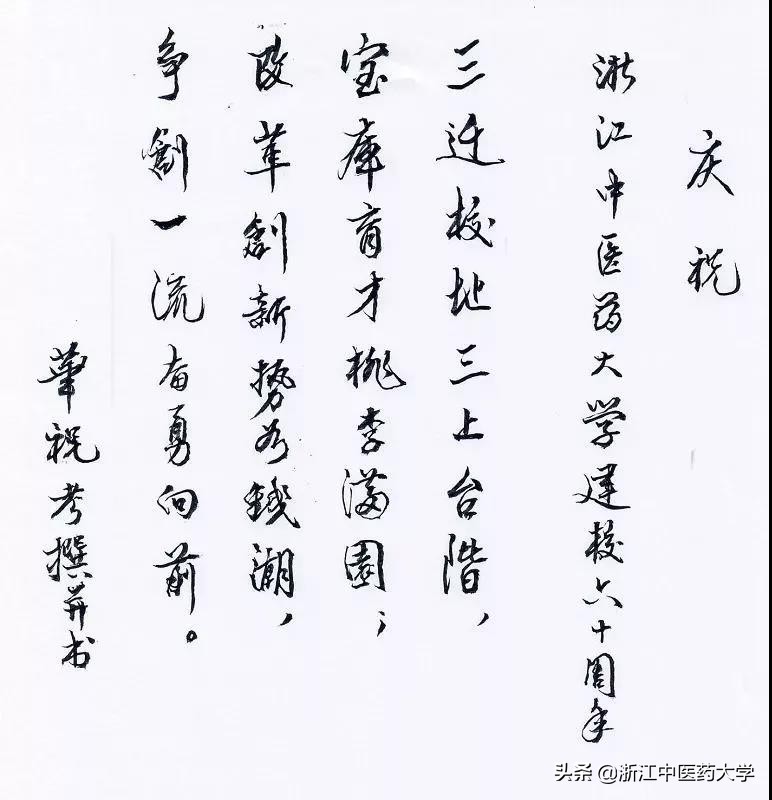 庆祝
浙江中医药大学建校六十周年
三迁校地三上台階,
宝庫育才桃李满園;
改革創新势为錢潮,
争創一流奋勇向前。
葉祝考撰并书
头条 @浙江中医药大学